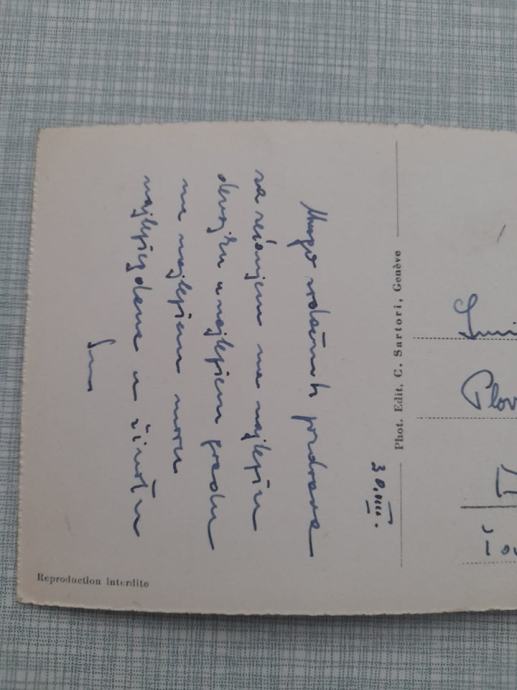 30.VIII.
Mnogo srdačnih pozdrava
sa sećanjem na najlepšu
devojku u najlepšem gradu
na najlepšem moru
najlepšeg dana u životu
Phot. Edit. C. Sartori, Genève
Reproduction interdite
Plov